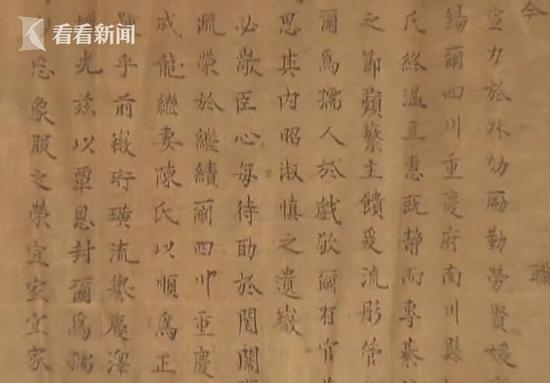 看看新闻
今
宣力於外劬勵勤勞賢媛
錫爾四川重慶府南川縣
氏終温且惠既静而專綦
之節蘋蘩主饋爰流彤管
爾為孺人於戲敬爾有官
思其内昭淑慎之遺徽
必敬臣心每待助於閨闈
流榮於繼續爾四川重慶
成龍繼妻陳氏以順為正
乎前徽珩璜流譽慶澤
光兹以覃恩封爾為孺
象服之榮宜室宜家